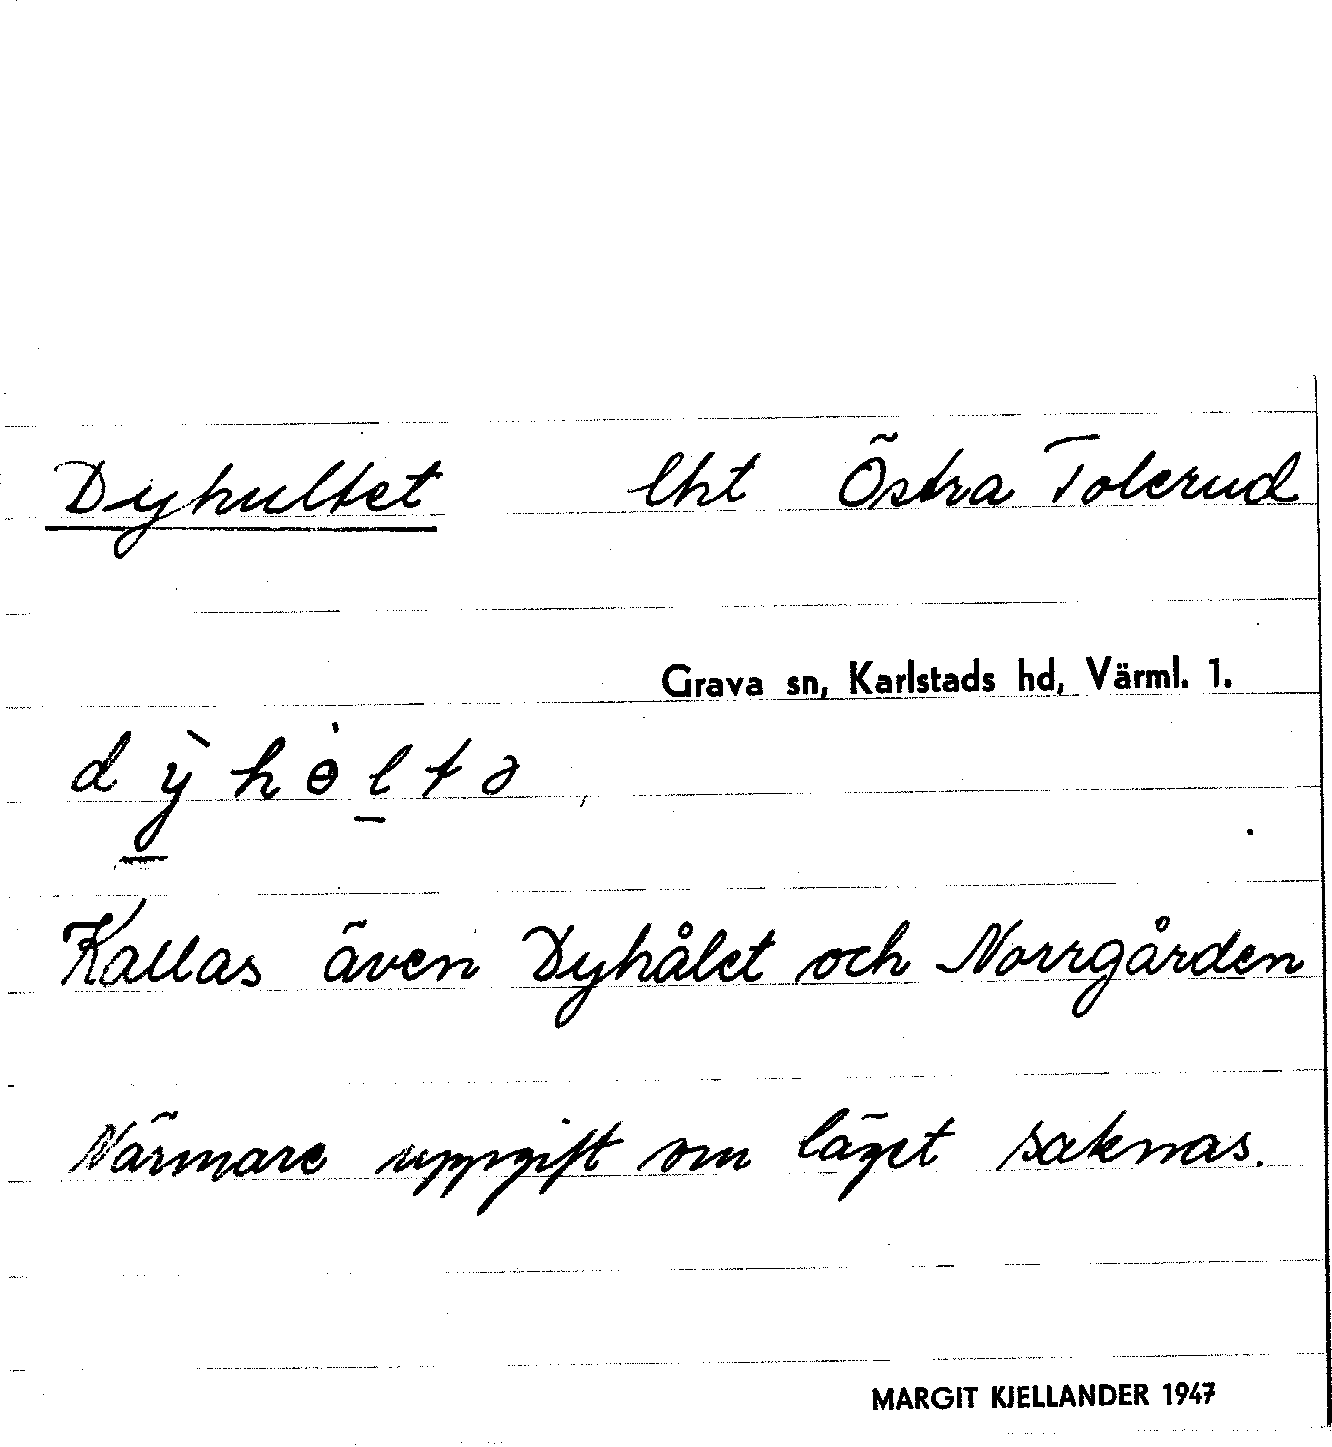 Dyhultet lht Östra Tolerud
Grava sn, Karlstads hd, Värml. 1.
dỳhɵ̇ltə,
Kallas även Dyhålet och Norrgården
Närmare uppgift om läget saknas.
MARGIT KJELLANDER 1947